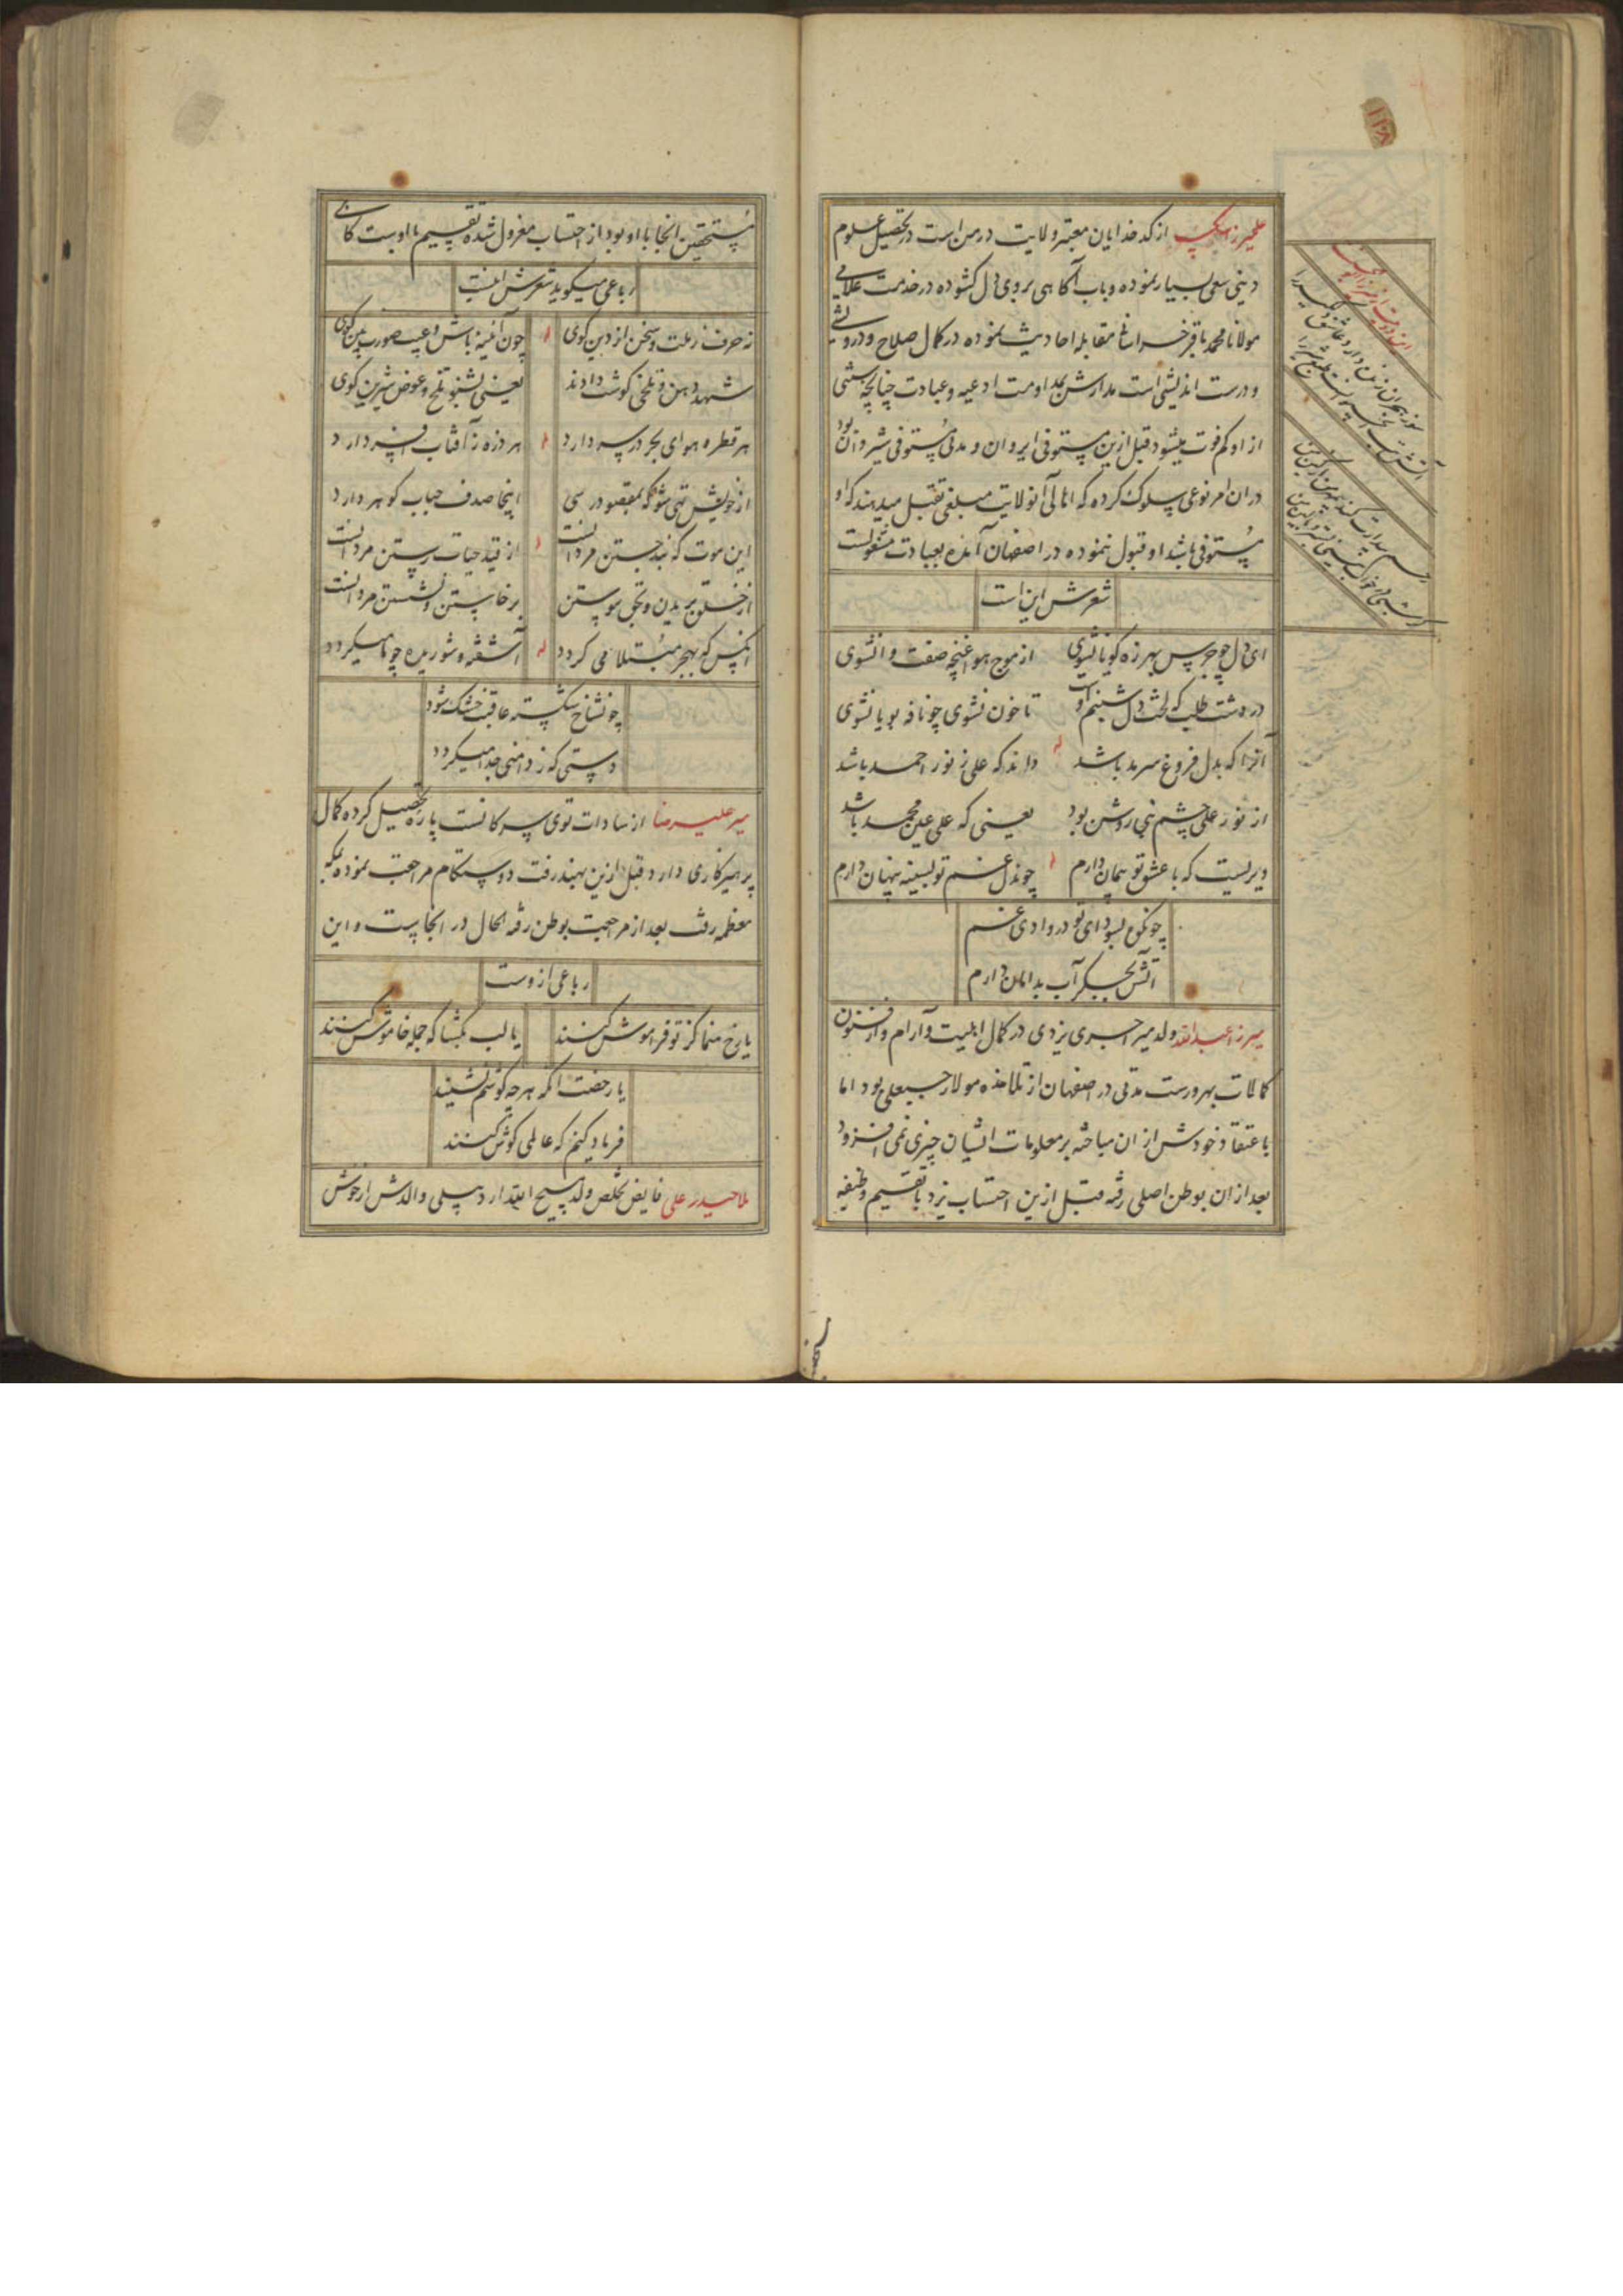 ۲۲۸
علیمیرزا بیک از کدخدایان معتبر ولایت درمن است در تحصیل علوم
دینی سعی بسیار نموده و باب آگاهی بروی دل کشوده در خدمت علامی
مولانا محمد باقر خراسانی مقابله احادیث نموده در کمال صلاح و درویشی
و درست اندیشی است مدارش بمداومت ادعیه و عبادت چنانچه شبی
از او کم فوت میشود قبل ازین مستوفی ایروان و مدتی مستوفی شیروان بود
در ان امر نوعی سلوک کرده که اهالی آنولایت مبلغی تقبل میدهند که او
مستوفی باشد او قبول ننموده در اصفهان آمده بعبادت مشغولست
شعرش این است
ای دل چو جرس بهرزه کویا نشوی از موج هوا غنچه صفت وا نشوی
در دشت طلب که لخت دل شبنم اوست تا خون نشوی چو نافه بویا نشوی
آنرا که بدل فروغ سرمد باشد داند که علی ز نور احمد باشد
از نور علی چشم نبی روشن بود یعنی که علی عین محمد باشد
دیریست که با عشق تو سامان دارم چو ندل غم تو بسینه پنهان دارم
چونکوه بسودای تو در وادی غم
آتش بجگر آب بدامان دارم
میرزا عبدالله ولد میر جبری یزدی در کمال اهلیت و آرام و از فنون
کمالات بهرورست مدتی در اصفهان از تلامذه مولا رجبعلی بود اما
باعتقاد خودش از ان مباحثه بر معلومات ایشان چیزی نمی افزود
بعد از ان بوطن اصلی رفته قبل ازین احتساب یزد با تقسیم وظیفه
مستحقین انجا با او بود از احتساب معزول شده تقسیم با اوست کاهی
رباعی میکوید شعرش اینست
نه حرف ز ملت و سخن از دین کوی چون آئینه باش و عیب صورت بین کوی
شهد دهن و تلخی کوشت دادند یعنی بشنو تلخ و عوض شیرین کوی
هر قطره هوای بحر در سر دارد هر ذره ز آفتاب افسر دارد
از خویش تهی شو که بمقصود رسی اینجا صدف حباب کوهر دارد
این موت که بند جستن مردانست از قید حیات رستن مردانست
از خلق بریدن و بحق پیوستن برخاستن و نشستن مردانست
آنکس که بهجر مبتلا می کردد آشفته و شوریده چو ما میکردد
چونشاخ شکسته عاقبت خشک شود
دستی که ز دامنی جدا میکردد
میر علیرضا از سادات توی سرکانست پاره تحصیل کرده کمال
پرهیزکاری دارد قبل ازین بهند رفت دوستکام مراجعت نموده بمکه
معظمه رفت بعد از مراجعت بوطن رفته الحال در انجاست و این
رباعی ازوست
یا رخ منما کز تو فراموش کنند یا لب بکشا که جمله خاموش کنند
یا رخصت اگر هر چه کوشم نشنید
فریاد کنم که عالمی کوش کنند
ملا حیدر علی فایض تخلص ولد مسیح الله اردبیلی والدش از خوش